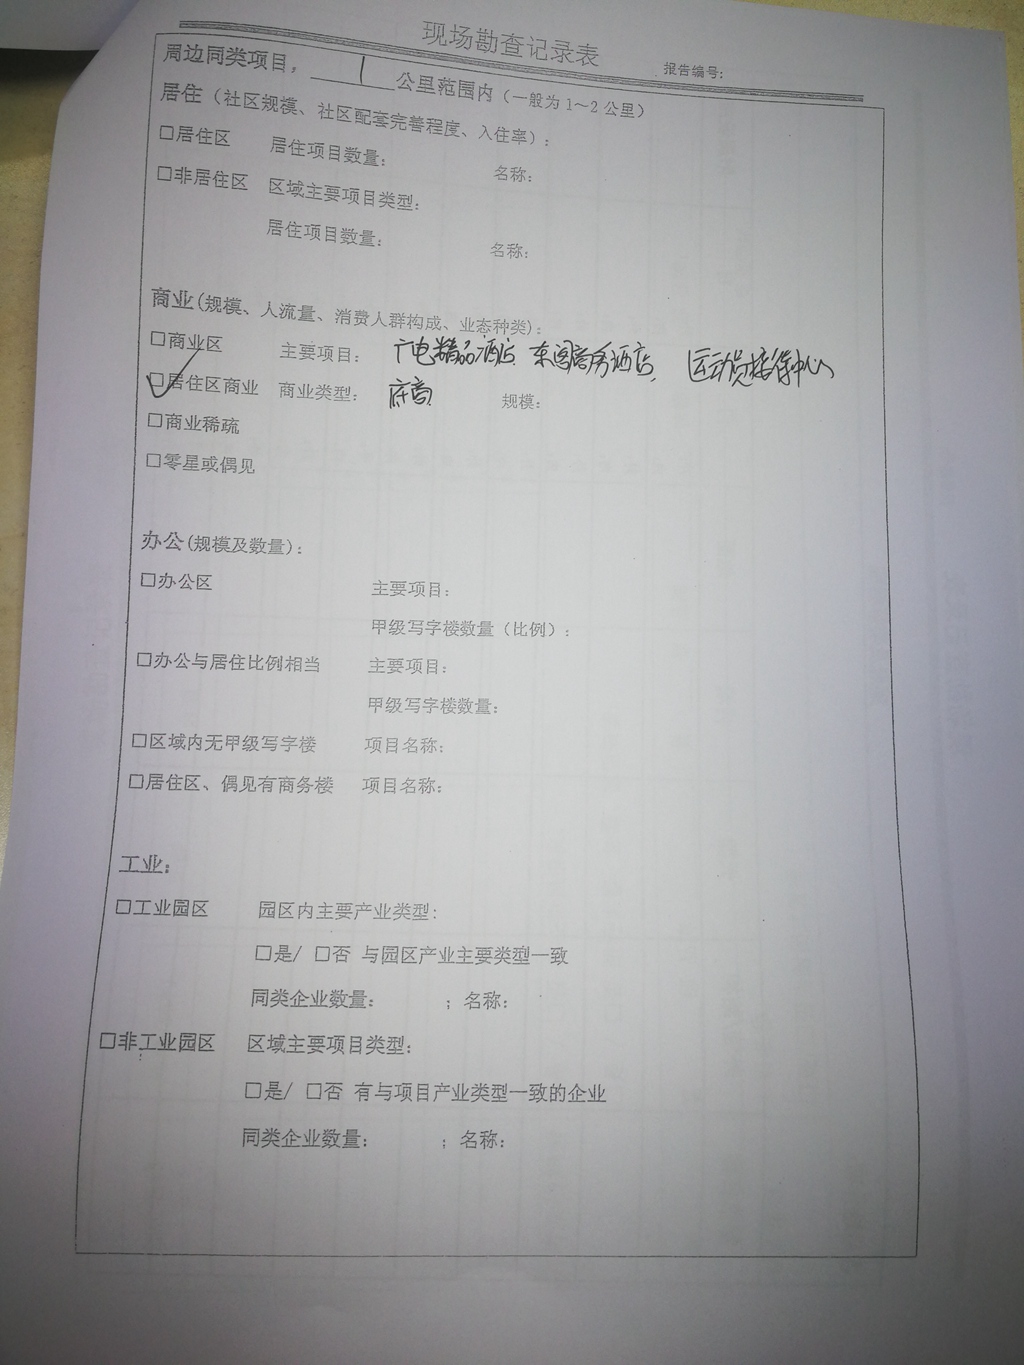 现场勘查记录表
报告编号:
周边同类项目，1公里范围内（一般为1～2公里）
居住（社区规模、社区配套完善程度、入住率）：
□居住区 居住项目数量： 名称：
□非居住区 区域主要项目类型：
居住项目数量： 名称：
商业(规模、人流量、消费人群构成、业态种类)：
□商业区 主要项目： 广电精品酒店、商务酒店、运动员接待中心
☑居住区商业 商业类型： 底商 规模：
□商业稀疏
□零星或偶见
办公(规模及数量)：
□办公区 主要项目：
甲级写字楼数量（比例）：
□办公与居住比例相当 主要项目：
甲级写字楼数量：
□区域内无甲级写字楼 项目名称：
□居住区、偶见有商务楼 项目名称：
工业：
□工业园区 园区内主要产业类型：
□是/ □否 与园区产业主要类型一致
同类企业数量： ；名称：
□非工业园区 区域主要项目类型：
□是/ □否 有与项目产业类型一致的企业
同类企业数量： ；名称：